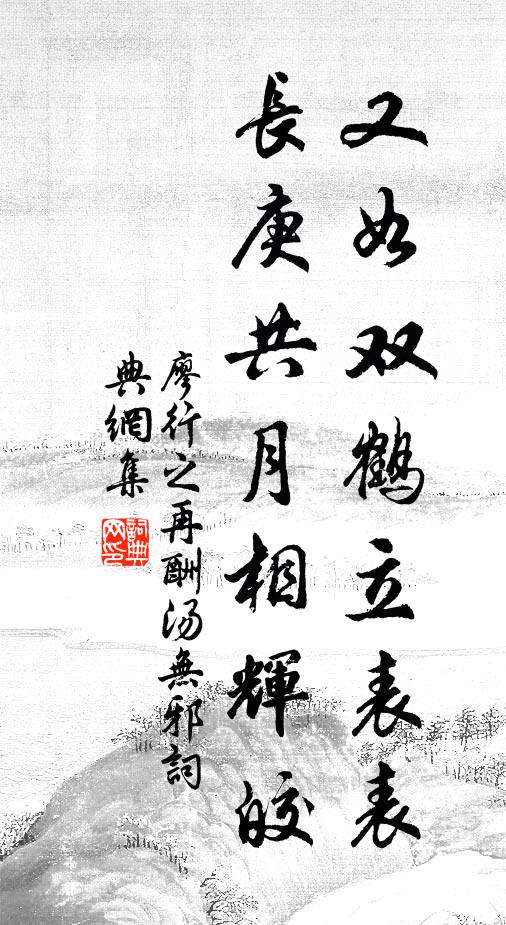 又如双鹤立表表
長庚共月相輝皎
廖行之再酬汤無邪詞
典網集
詞典网印